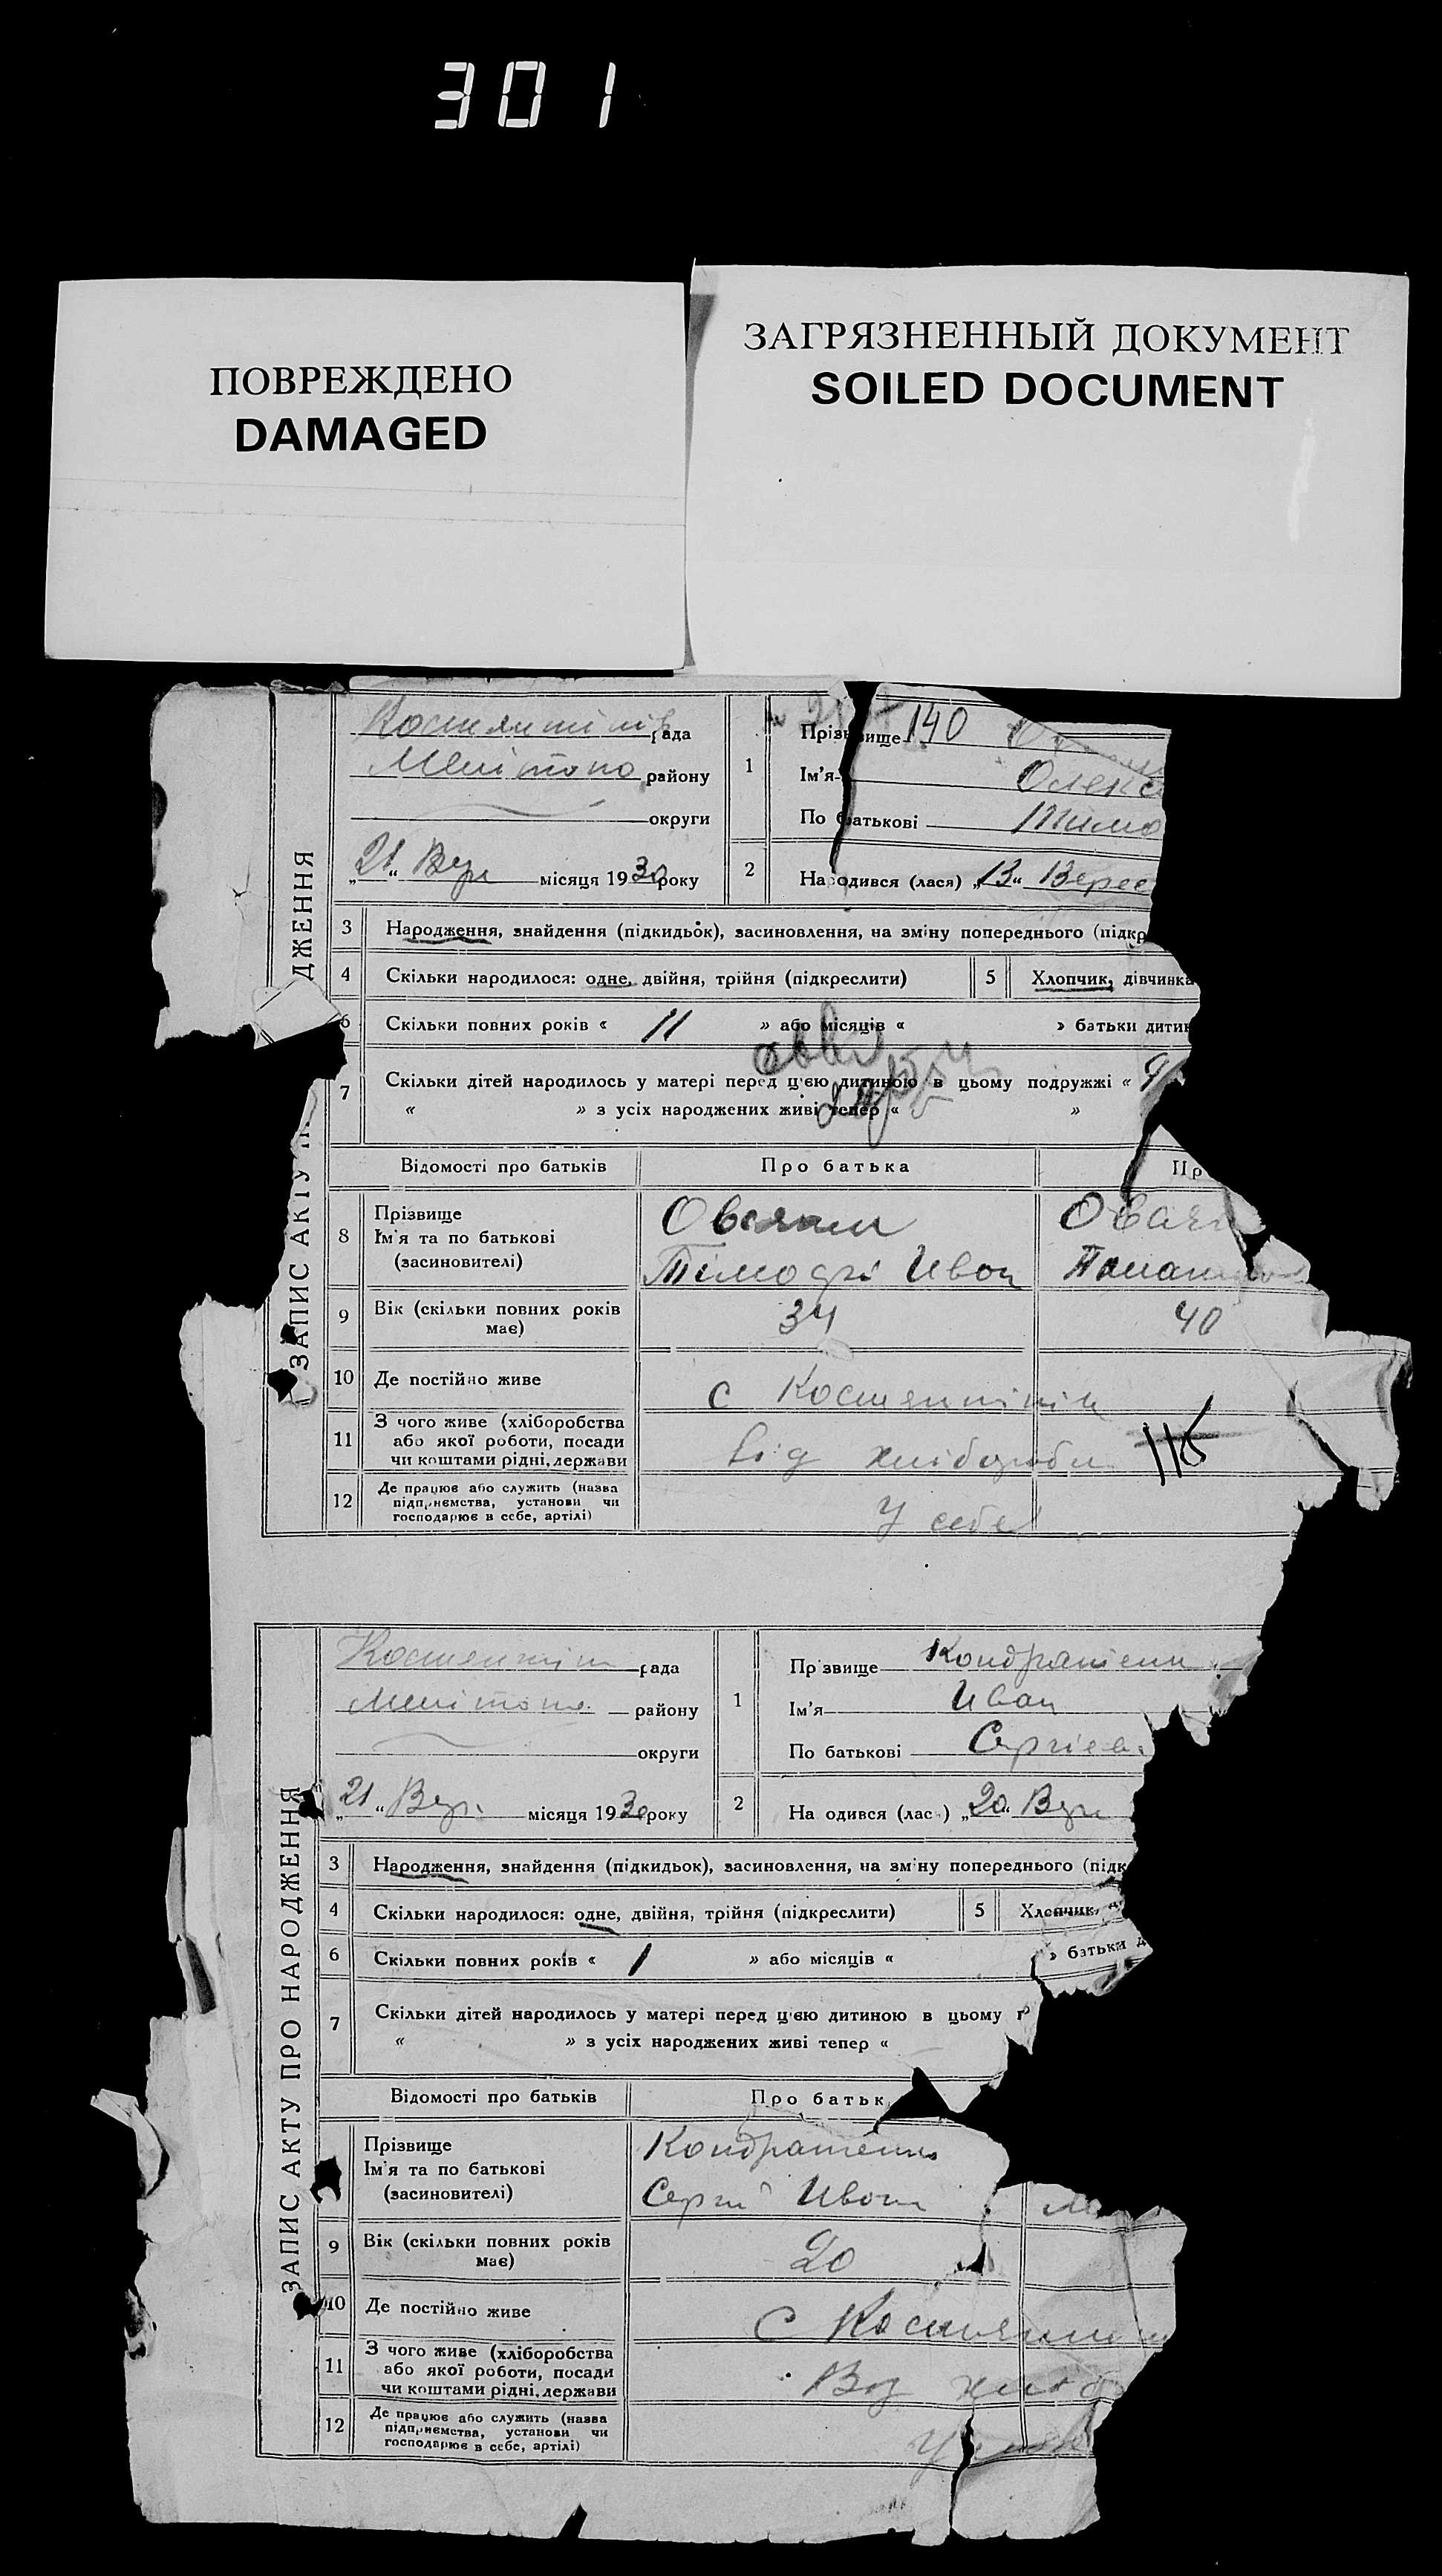 301
ПОВРЕЖДЕНО
DAMAGED
ЗАГРЯЗНЕННЫЙ ДОКУМЕНТ
SOILED DOCUMENT
ДЖЕННЯ
ЗАПИС АКТУ П
рада
району
округи
„21“ Вер місяця 1930 року
1
Прізвище 140
Ім'я Олекс
По батькові Тимо
2
Народився (лася) „13“ Верес
3 Народження, знайдення (підкидьок), засиновлення, на зміну попереднього (підкр
4 Скільки народилося: одне, двійня, трійня (підкреслити)
5 Хлопчик, дівчинка
6 Скільки повних років « 11 » або місяців « » батьки дитин
7 Скільки дітей народилось у матері перед ц'єю дитиною в цьому подружжі « 9
« » з усіх народжених живі тепер « »
Відомості про батьків
Про батька
Пр
8 Прізвище
Ім'я та по батькові
(засиновителі)
Тімофі Ивон
9 Вік (скільки повних років
має)
34
40
10 Де постійно живе
с Костянтінін
11 З чого живе (хліборобства
або якої роботи, посади
чи коштами рідні, держави
від хліборобы
115
12 Де працює або служить (назва
підприємства, установи чи
господарює в себе, артілі)
У себе
ЗАПИС АКТУ ПРО НАРОДЖЕННЯ
рада
району
округи
„21“ Вер. місяця 1930 року
1
Прізвище Кондратенк
Ім'я Иван
По батькові Сергіев.
2
На одився (лас ) „20“ Вер
3 Народження, знайдення (підкидьок), засиновлення, на зміну попереднього (підк
4 Скільки народилося: одне, двійня, трійня (підкреслити)
5 Хлопчик,
6 Скільки повних років « 1 » або місяців « » батьки д
7 Скільки дітей народилось у матері перед ц'єю дитиною в цьому п
« » з усіх народжених живі тепер «
Відомості про батьків
Про батьк
Прізвище
Ім'я та по батькові
(засиновителі)
Кондратенко
Сергій Ивон
9 Вік (скільки повних років
має)
20
10 Де постійно живе
с Костянти
11 З чого живе (хліборобства
або якої роботи, посади
чи коштами рідні, держави
Від хліб
12 Де працює або служить (назва
підприємства, установи чи
господарює в себе, артілі)
У